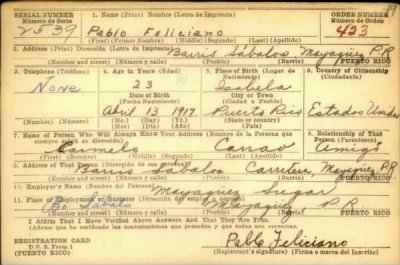 SERIAL NUMBER
Número de Serie
2539
1. Name (Print) Nombre (Letra de Imprenta)
Pablo Feliciano
(First) (Primer Nombre) (Middle) (Segundo) (Last) (Apellido)
ORDER NUMBER
Número de Orden
423
2. Address (Print) Dirección (Letra de Imprenta)
Barrio Sábalos Mayagüez P.R.
PUERTO RICO
3. Telephone (Teléfono)
None
4. Age in Years (Edad)
23
Date of Birth
(Fecha Nacimiento)
April 13 1917
(Mo.) (Mes) (Day) (Día) (Yr.) (Año)
5. Place of Birth (Lugar de Nacimiento)
Isabela
City or Town
(Ciudad o Pueblo)
Puerto Rico
(State or country)
6. Country of Citizenship
(Ciudadanía)
Estados Unidos
7. Name of Person Who Will Always Know Your Address (Nombre de la Persona que siempre sabrá su dirección)
Carmelo Carrao
(First) (Nombre) (Middle) (Segundo) (Last) (Apellido)
8. Relationship of That Person (Parentesco)
Amigo
9. Address of That Person (Dirección de esa persona)
Barrio Sabalos Carretera, Mayagüez, P.R.
PUERTO RICO
10. Employer's Name (Nombre del Patrono)
Mayaguez Sugar
11. Place of Employment or Business (Dirección del empleo o negocio)
Bo. Sabalo Mayaguez P R
PUERTO RICO
I Affirm That I Have Verified Above Answers And That They Are True.
(Afirmo que he verificado las contestaciones que preceden, y que todas son correctas.)
REGISTRATION CARD
D. S. S. Form 1
(Puerto Rico)
Pablo Feliciano
Registrant's signature (Firma o marca del Inscrito)